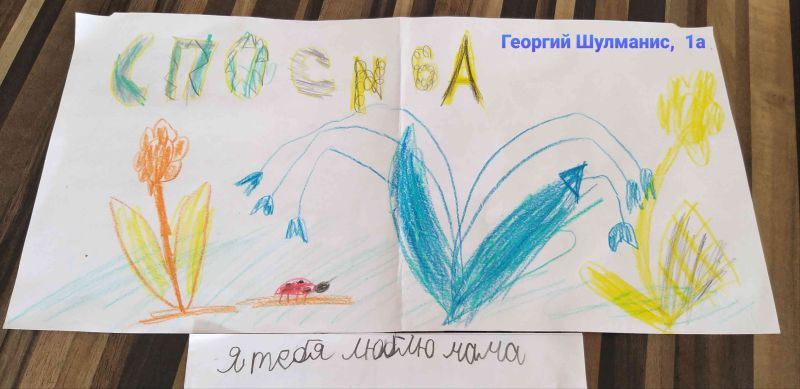 СПОСИБА
Георгий Шулманис, 1а
я тебя люблю мама